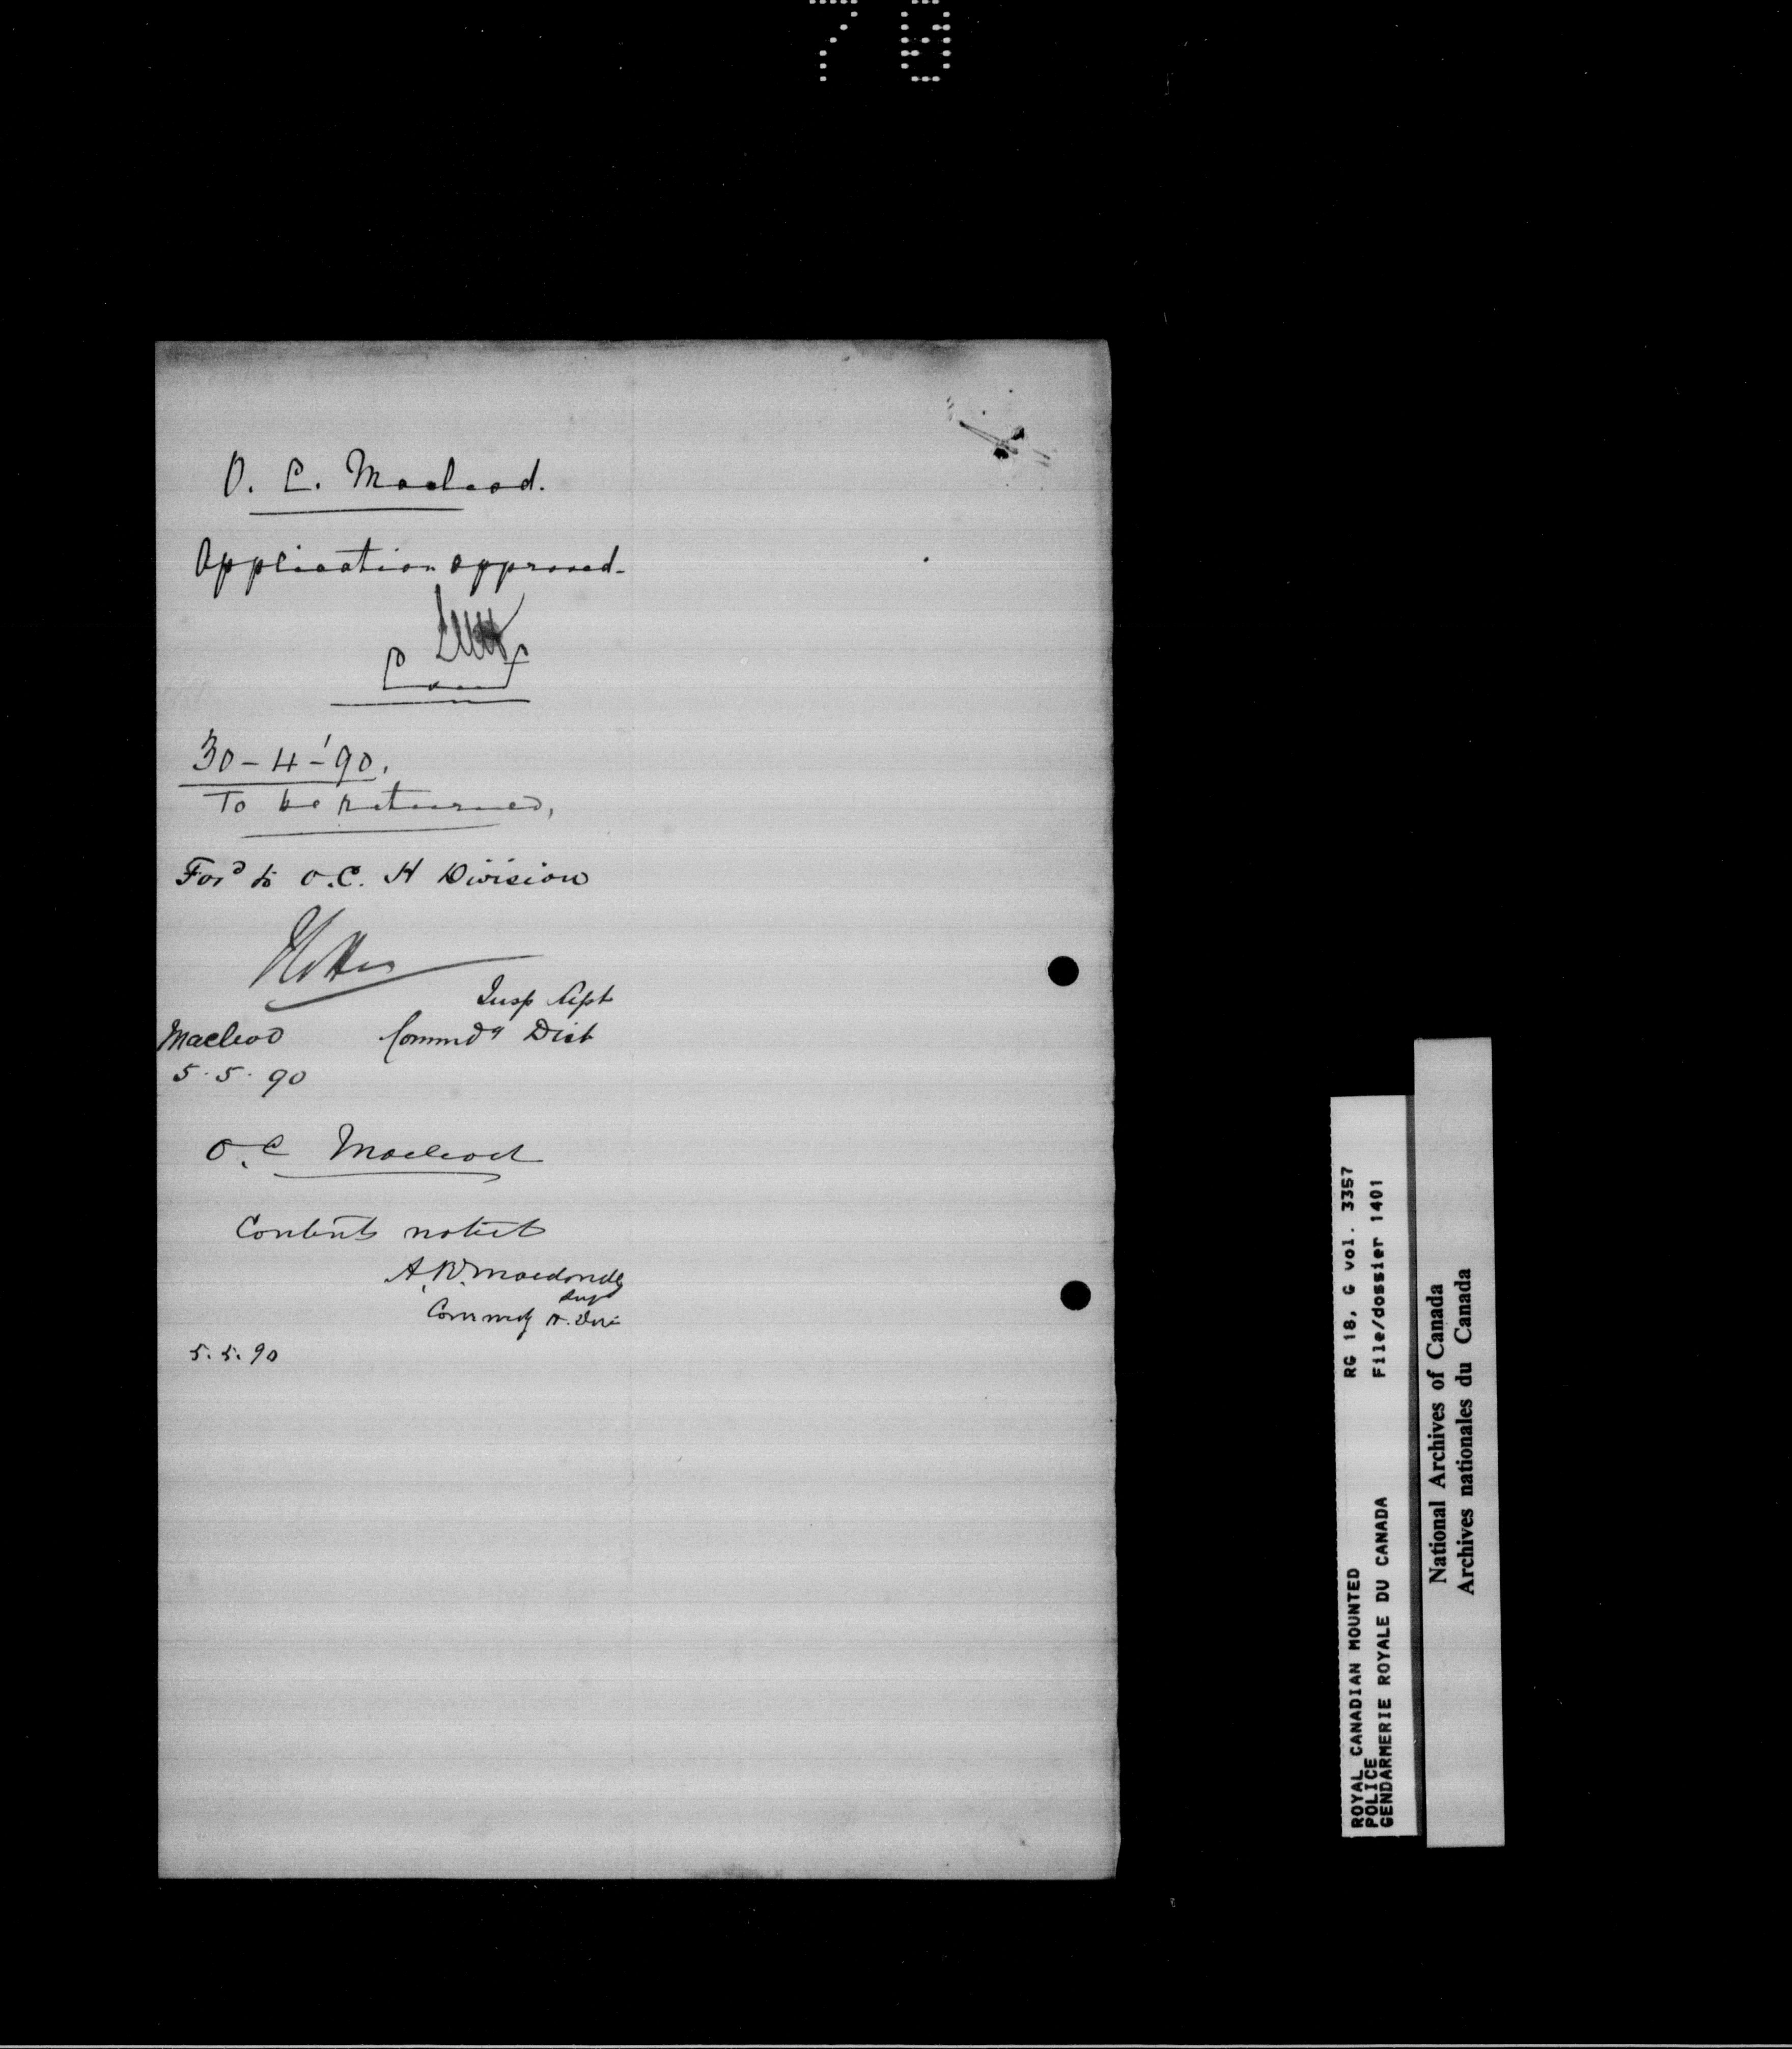 70
O. C. Macleod.
Application approved.
30-4-'90.
To be returned,
For'd to O.C. H Division
Insp Dept
Macleod Commdg Dist
5.5.90
O.C Macleod
Contents noted
A. R. Macdonell
Supt
Commdg H. Div
5.5.90
ROYAL CANADIAN MOUNTED RG 18, G vol. 3357
POLICE File/dossier 1401
GENDARMERIE ROYALE DU CANADA
National Archives of Canada
Archives nationales du Canada